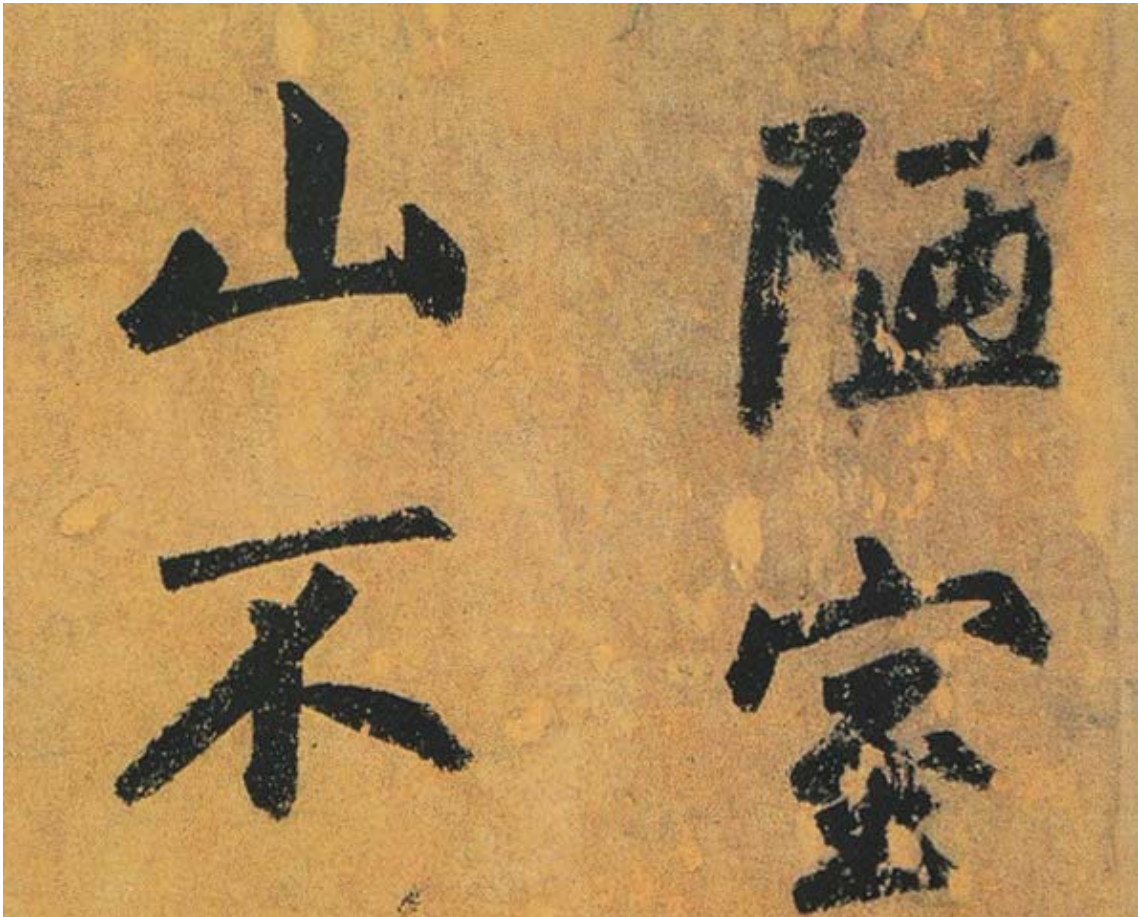 陋室
山不